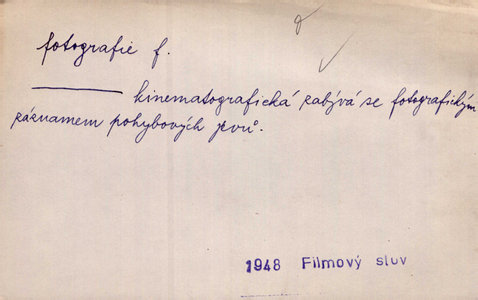 fotografie f.
kinematografická zabývá se fotografickým
záznamem pohybových jevů.
1948 Filmový slov